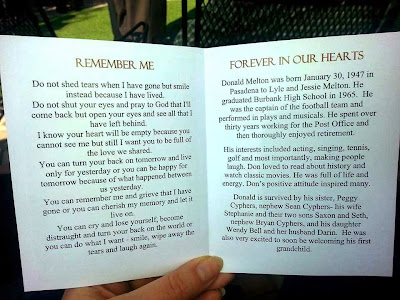 REMEMBER ME
Do not shed tears when I have gone but smile
instead because I have lived.
Do not shut your eyes and pray to God that I'll
come back but open your eyes and see all that I
have left behind.
I know your heart will be empty because you
cannot see me but still I want you to be full of
the love we shared.
You can turn your back on tomorrow and live
only for yesterday or you can be happy for
tomorrow because of what happened between
us yesterday.
You can remember me and grieve that I have
gone or you can cherish my memory and let it
live on.
You can cry and lose yourself, become
distraught and turn your back on the world or
you can do what I want - smile, wipe away the
tears and laugh again.
FOREVER IN OUR HEARTS
Donald Melton was born January 30, 1947 in
Pasadena to Lyle and Jessie Melton. He
graduated Burbank High School in 1965. He
was the captain of the football team and
performed in plays and musicals. He spent over
thirty years working for the Post Office and
then thoroughly enjoyed retirement.
His interests included acting, singing, tennis,
golf and most importantly, making people
laugh. Don loved to read about history and
watch classic movies. He was full of life and
energy. Don's positive attitude inspired many.
Donald is survived by his sister, Peggy
Cyphers, nephew Sean Cyphers- his wife
Stephanie and their two sons Saxon and Seth,
nephew Bryan Cyphers, and his daughter
Wendy Bell and her husband Darin. He was
also very excited to soon be welcoming his first
grandchild.